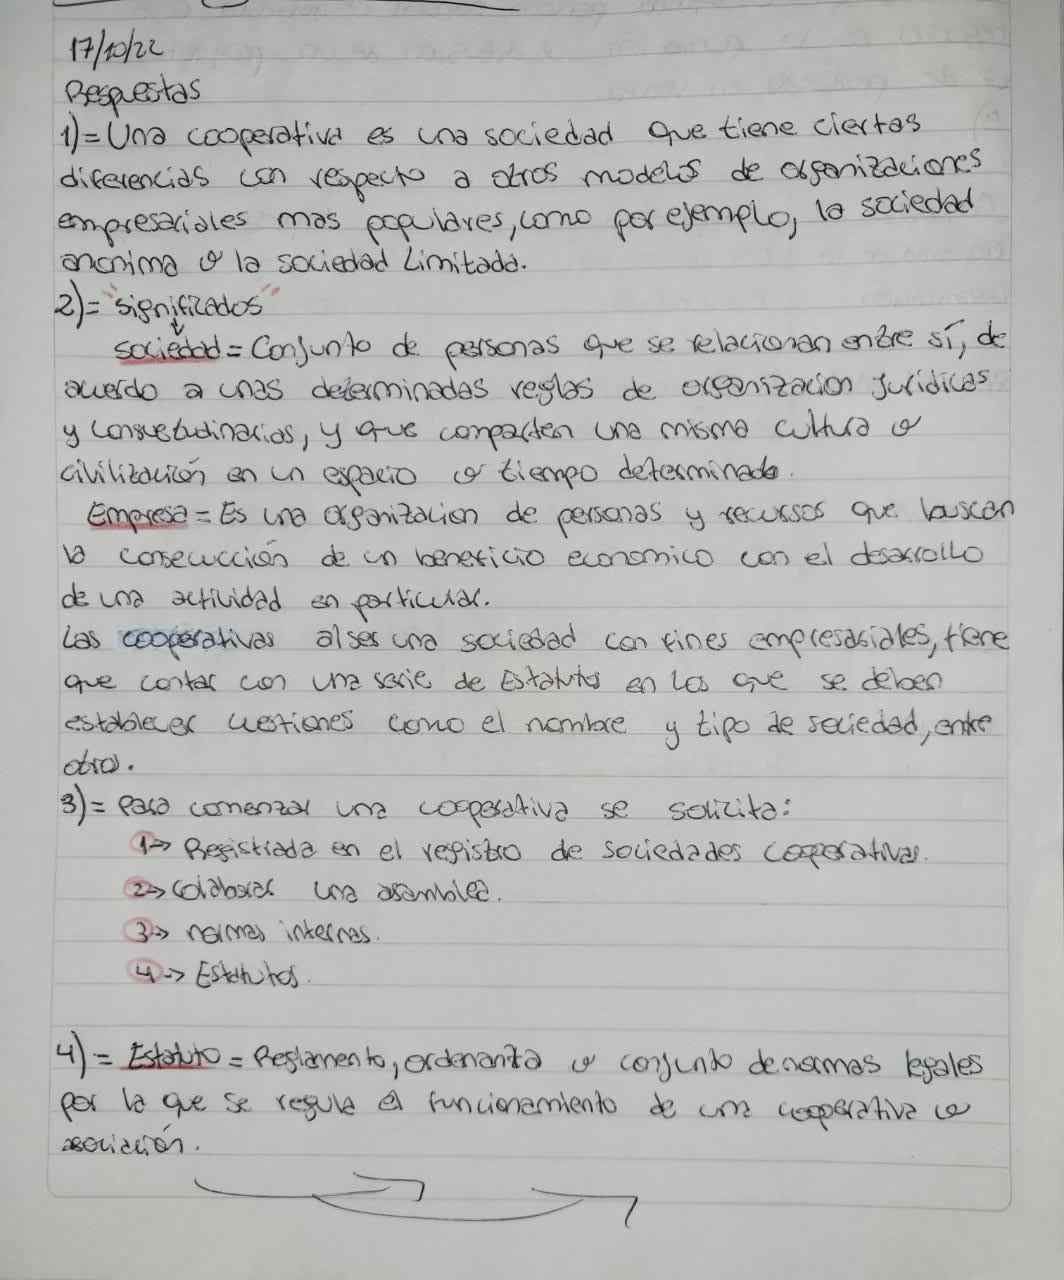 17/10/22
Respuestas
1)= Una cooperativa es una sociedad que tiene ciertas
diferencias con respecto a otros modelos de organizaciones
empresariales mas populares, como por ejemplo, la sociedad
anonima o la sociedad Limitada.
2)= "significados"
sociedad = Conjunto de personas que se relacionan entre sí, de
acuerdo a unas determinadas reglas de organizacion juridicas
y consuetudinarias, y que comparten una misma cultura o
civilización en un espacio o tiempo determinado.
Empresa = Es una organizacion de personas y recursos que buscan
la consecucción de un beneficio economico con el desarrollo
de una actividad en particular.
Las cooperativas al ser una sociedad con fines empresariales, tiene
que contar con una serie de Estatutos en los que se deben
establecer cuestiones como el nombre y tipo de sociedad, entre
otro.
3)= Para comenzar una cooperativa se solicita:
1-> Registrada en el registro de sociedades cooperativas.
2-> colaborar una asamblea.
3-> normas internas.
4-> Estatutos.
4)= Estatuto = Reglamento, ordenanza o conjunto de normas legales
por la que se regula el funcionamiento de una cooperativa o
asociación.